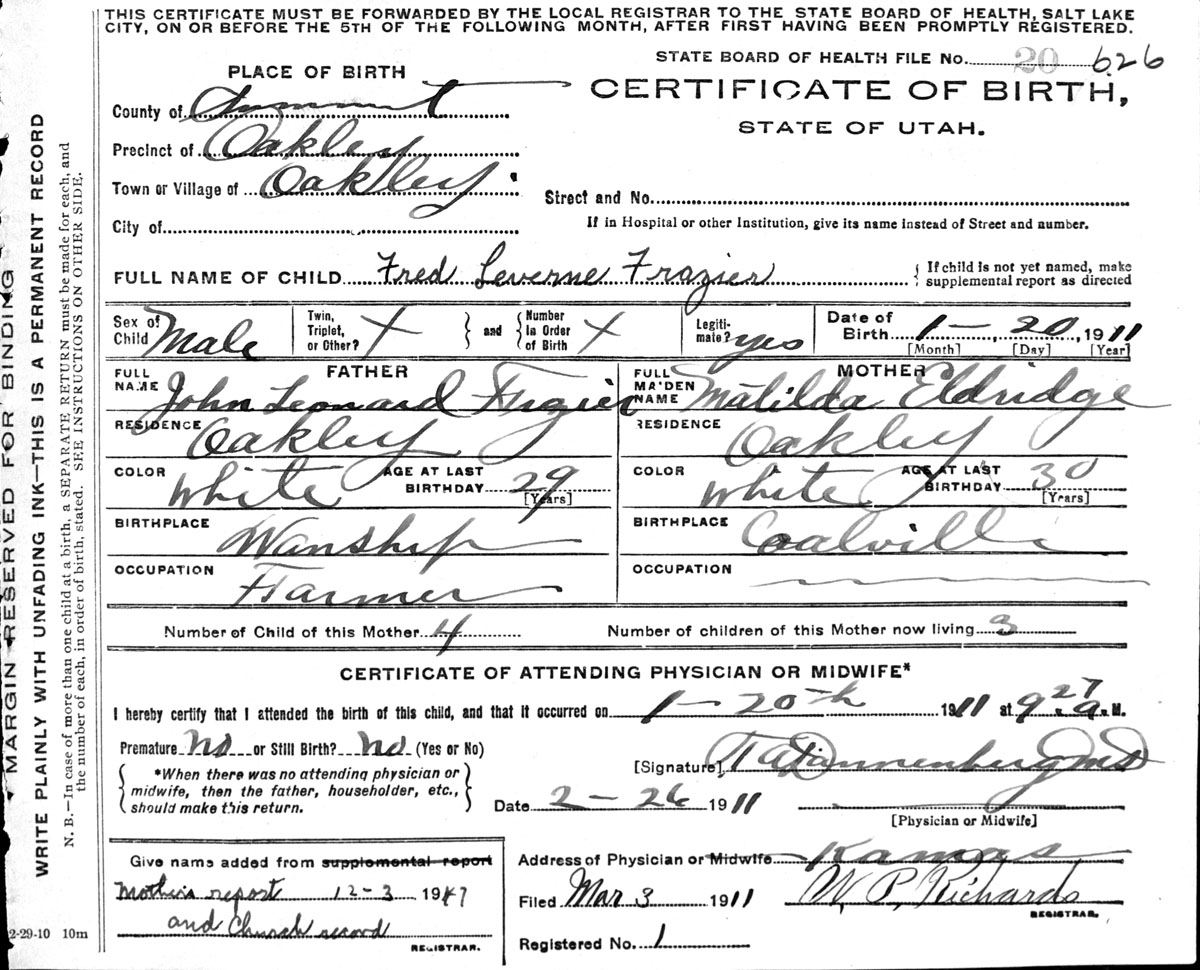 THIS CERTIFICATE MUST BE FORWARDED BY THE LOCAL REGISTRAR TO THE STATE BOARD OF HEALTH, SALT LAKE
CITY, ON OR BEFORE THE 5TH OF THE FOLLOWING MONTH, AFTER FIRST HAVING BEEN PROMPTLY REGISTERED.
STATE BOARD OF HEALTH FILE No. 20 626
PLACE OF BIRTH
CERTIFICATE OF BIRTH,
STATE OF UTAH.
County of Summit
Precinct of Oakley
Town or Village of Oakley
Street and No.
City of
If in Hospital or other Institution, give its name instead of Street and number.
FULL NAME OF CHILD Fred Leverne Frazier { If child is not yet named, make
supplemental report as directed
Sex of Child Male Twin, Triplet, or Other? X } and { Number In Order of Birth X Legiti-mate? yes Date of Birth 1 - 20, 1911
[Month] [Day] [Year]
FATHER MOTHER
FULL NAME John Leonard Frazier FULL MAIDEN NAME Matilda Eldridge
RESIDENCE Oakley RESIDENCE Oakley
COLOR White AGE AT LAST BIRTHDAY 29 [Years] COLOR White AGE AT LAST BIRTHDAY 30 [Years]
BIRTHPLACE Wanship BIRTHPLACE Coalville
OCCUPATION Farmer OCCUPATION
Number of Child of this Mother 4 Number of children of this Mother now living 3
CERTIFICATE OF ATTENDING PHYSICIAN OR MIDWIFE*
I hereby certify that I attended the birth of this child, and that it occurred on 1 - 20th 1911 at 9.27 a.M.
Premature No or Still Birth? No (Yes or No)
[Signature] Dannenberg MD
*When there was no attending physician or
midwife, then the father, householder, etc.,
should make this return.
Date 2 - 26 1911
[Physician or Midwife]
Give name added from supplemental report
Mother's report 12-3 1947
and Church record
REGISTRAR.
Address of Physician or Midwife Kamas
Filed Mar 3 1911 W. P. Richards
REGISTRAR.
Registered No. 1
2-29-10 10m
MARGIN RESERVED FOR BINDING
WRITE PLAINLY WITH UNFADING INK—THIS IS A PERMANENT RECORD
N. B.—In case of more than one child at a birth, a SEPARATE RETURN must be made for each, and
the number of each, in order of birth, stated. SEE INSTRUCTIONS ON OTHER SIDE.